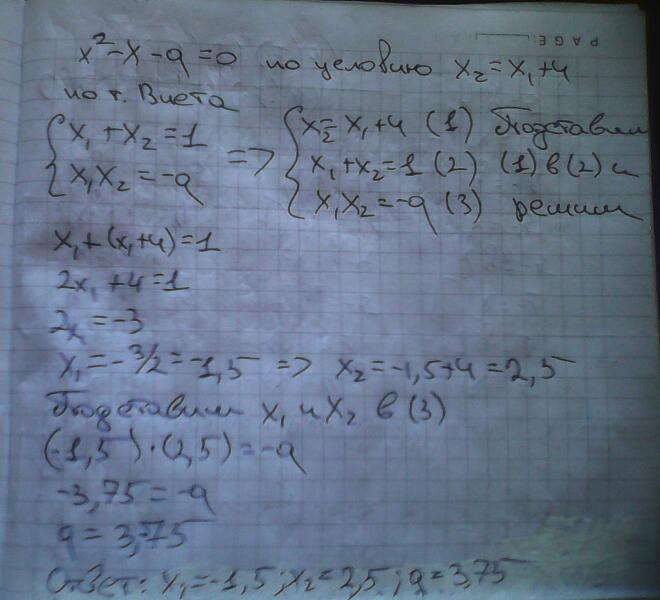 PAGE:
x²-x-q=0 по условию x₂=x₁+4
по т. Виета
{x₁+x₂=1 {x₂=x₁+4 (1) Подставим
{x₁x₂=-q => {x₁+x₂=1 (2) (1) в (2) и
{x₁x₂=-q (3) решим
x₁+(x₁+4)=1
2x₁+4=1
2x₁=-3
x₁=-3/2=-1,5 => x₂=-1,5+4=2,5
Подставим x₁ и x₂ в (3)
(-1,5)·(2,5)=-q
-3,75=-q
q=3,75
Ответ: x₁=-1,5; x₂=2,5; q=3,75